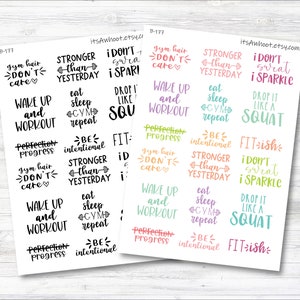 B-177
itsAwhoot.etsy.com
gym hair
DON'T
care
STRONGER
than
YESTERDAY
I DON'T
sweat
I SPARKLE
WAKE UP
and
WORKOUT
eat
sleep
GYM
repeat
DROP IT
LIKE A
SQUAT
PERFECTION
progress
BE
intentional
FIT
gym hair
DON'T
care
STRONGER
than
YESTERDAY
I D
s
I S
WAKE UP
and
WORKOUT
eat
sleep
GYM
repeat
PERFECTION
progress
BE
intentional
B-177
itsAwhoot.etsy.com
gym hair
DON'T
care
STRONGER
than
YESTERDAY
I DON'T
sweat
I SPARKLE
WAKE UP
and
WORKOUT
eat
sleep
GYM
repeat
DROP IT
LIKE A
SQUAT
PERFECTION
progress
BE
intentional
FIT-ish
gym hair
DON'T
care
STRONGER
than
YESTERDAY
I DON'T
sweat
I SPARKLE
WAKE UP
and
WORKOUT
eat
sleep
GYM
repeat
DROP IT
LIKE A
SQUAT
PERFECTION
progress
BE
intentional
FIT-ish